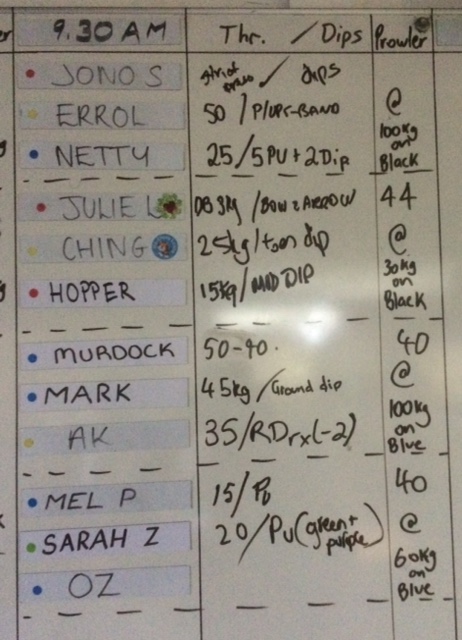 9.30 AM Thr. / Dips Prowler
JONO S strict / dips
ERROL 50 / P/UPS-BAND @
NETTY 25/5PU+2Dip 100kg on Black
JULIE L DB 9kg /BOW & ARROW 44
CHING 25kg/ dip @
HOPPER 15kg/ DIP 30kg on Black
MURDOCK 50-40. 40
MARK 45kg /Ground dip @
AK 35/RDrx(-2) 100kg on Blue
MEL P 15/ 40
SARAH Z 20/Pu(green+ purple) @
OZ 60kg on Blue